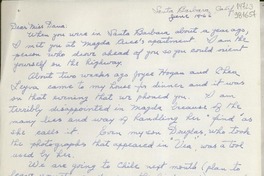 Santa Barbara, Calif.
June 1963
Dear Miss Dana:
When you were in Santa Barbara about a year ago,
I met you at Magda Arce's apartment. I am the
person who drove ahead of you so you could orient
yourself on the highway.
About two weeks ago Joyce Hogan and Chen
Leyva came to my house for dinner and it was
on that evening that we phoned you. I am
terribly disappointed in Magda because of the
many lies and way of handling her "find" as
she calls it. Even my son Douglas, who took
the photographs that appeared in "Vea", was a tool
used by her.
We are going to Chile next month (plan to